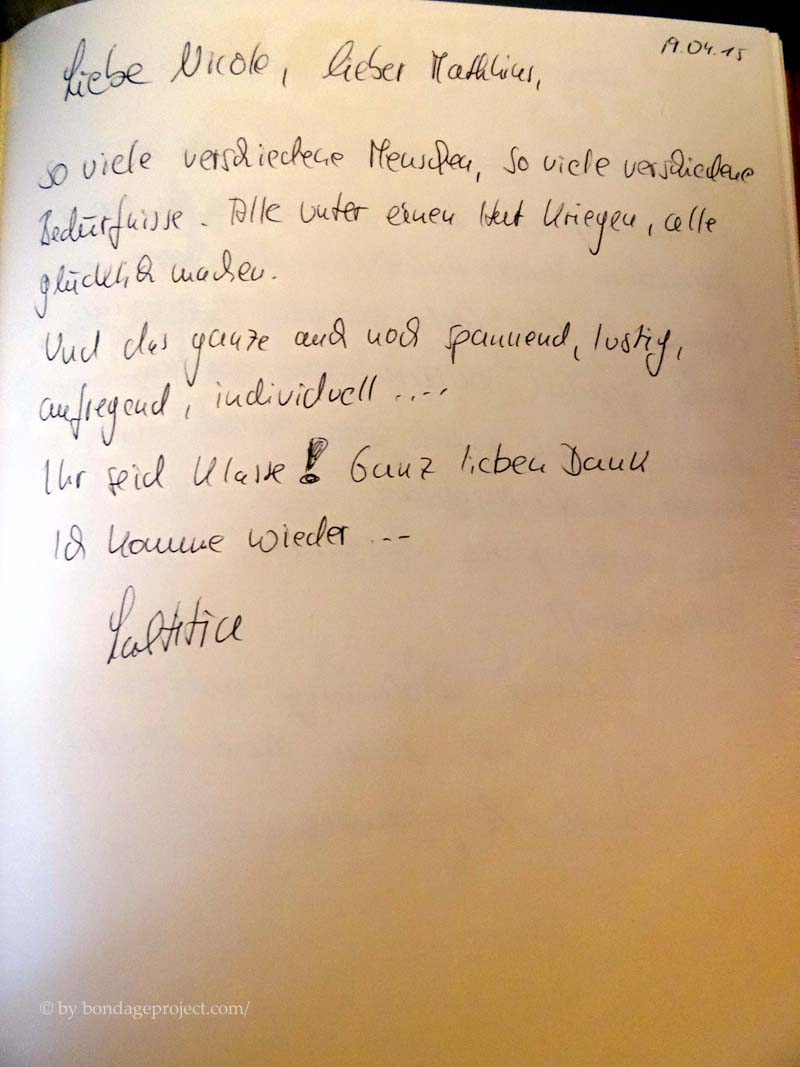 19.04.15
Liebe Nicole, lieber Mathhias,
so viele verschiedene Menschen, so viele verschiedene
Bedürfnisse. Alle unter einen Hut kriegen, alle
glücklich machen.
Und das ganze auch noch spannend, lustig,
aufregend, individuell ....
Ihr seid Klasse! Ganz lieben Dank
Ich komme wieder ...
© by bondageproject.com/